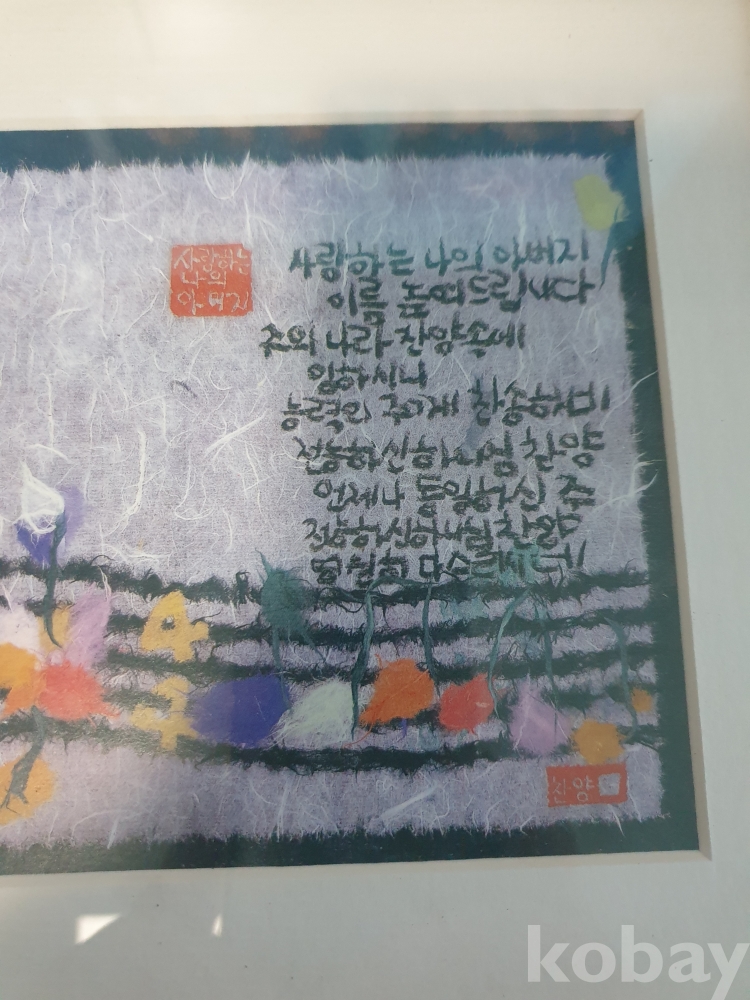 사랑하는
나의
아버지
사랑하는 나의 아버지
이름 높여드립니다
주의 나라 찬양속에
임하시니
능력의 주께 찬송하네
전능하신하나님 찬양
언제나 동일하신 주
전능하신하나님 찬양
영원히 다스리시네
4
4
찬양
kobay